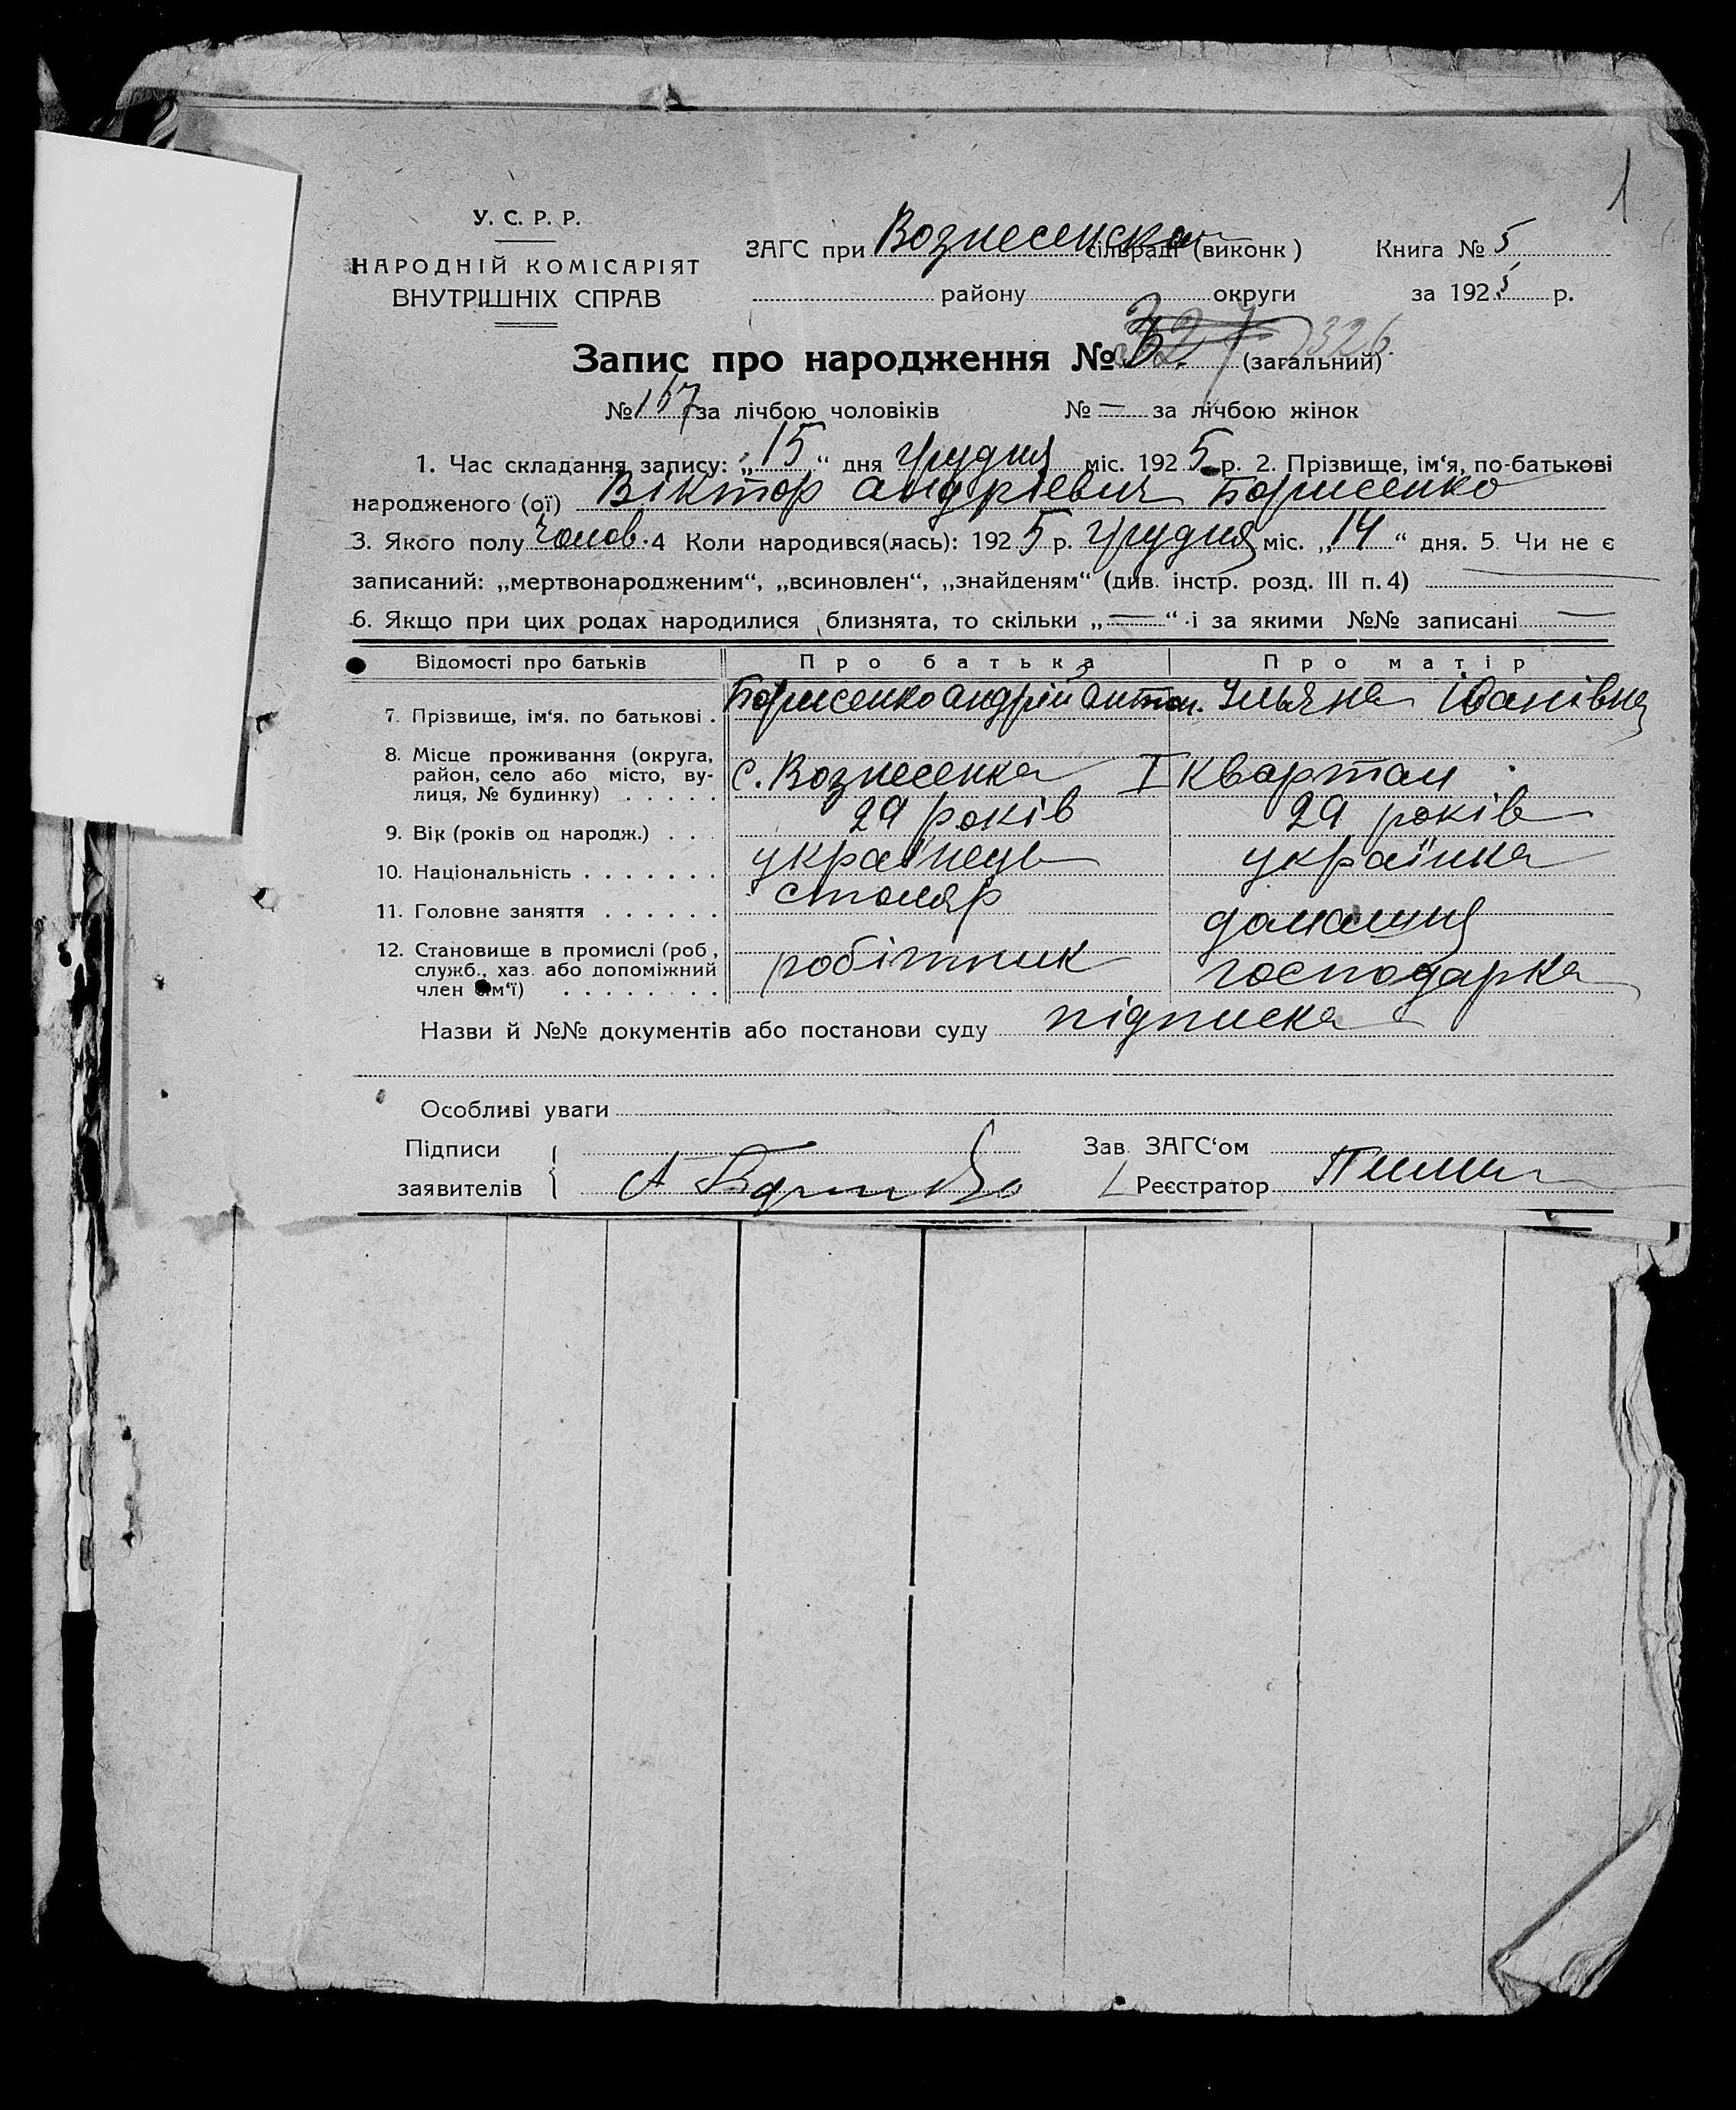 1
У. С. Р. Р.
НАРОДНІЙ КОМІСАРІЯТ
ВНУТРІШНІХ СПРАВ
ЗАГС при Вознесенськ сільраді (виконк) Книга № 5
району округи за 1925 р.
Запис про народження № 327 (загальний) 326
№ 167 за лічбою чоловіків № — за лічбою жінок
1. Час складання запису: „15“ дня грудня міс. 1925 р. 2. Прізвище, ім‘я, по-батькові
народженого (ої) Віктор Андрієвич Борисенко
3. Якого полу чолов. 4 Коли народився(лась): 1925 р. грудня міс. „14“ дня. 5 Чи не є
записаний: „мертвонародженим“, „всиновлен“, „знайденям“ (див. інстр. розд. III п. 4) —
6. Якщо при цих родах народилися близнята, то скільки „—“ і за якими №№ записані —
Відомості про батьків Про батька Про матір
7. Прізвище, ім‘я. по батькові . Борисенко Андрій Антон. Ульяна Іванівна
8. Місце проживання (округа,
район, село або місто, ву-
лиця, № будинку) . . . . . с. Вознесенка I квартал
9. Вік (років од народж.) . . . 29 років 29 років
10. Національність . . . . . . . українець українка
11. Головне заняття . . . . . . столяр домашня
12. Становище в промислі (роб,
служб., хаз. або допоміжний
член сім‘ї) . . . . . . . . робітник господарка
Назви й №№ документів або постанови суду підписка
Особливі уваги
Підписи
заявителів А Борисенко
Зав. ЗАГС‘ом
Реєстратор